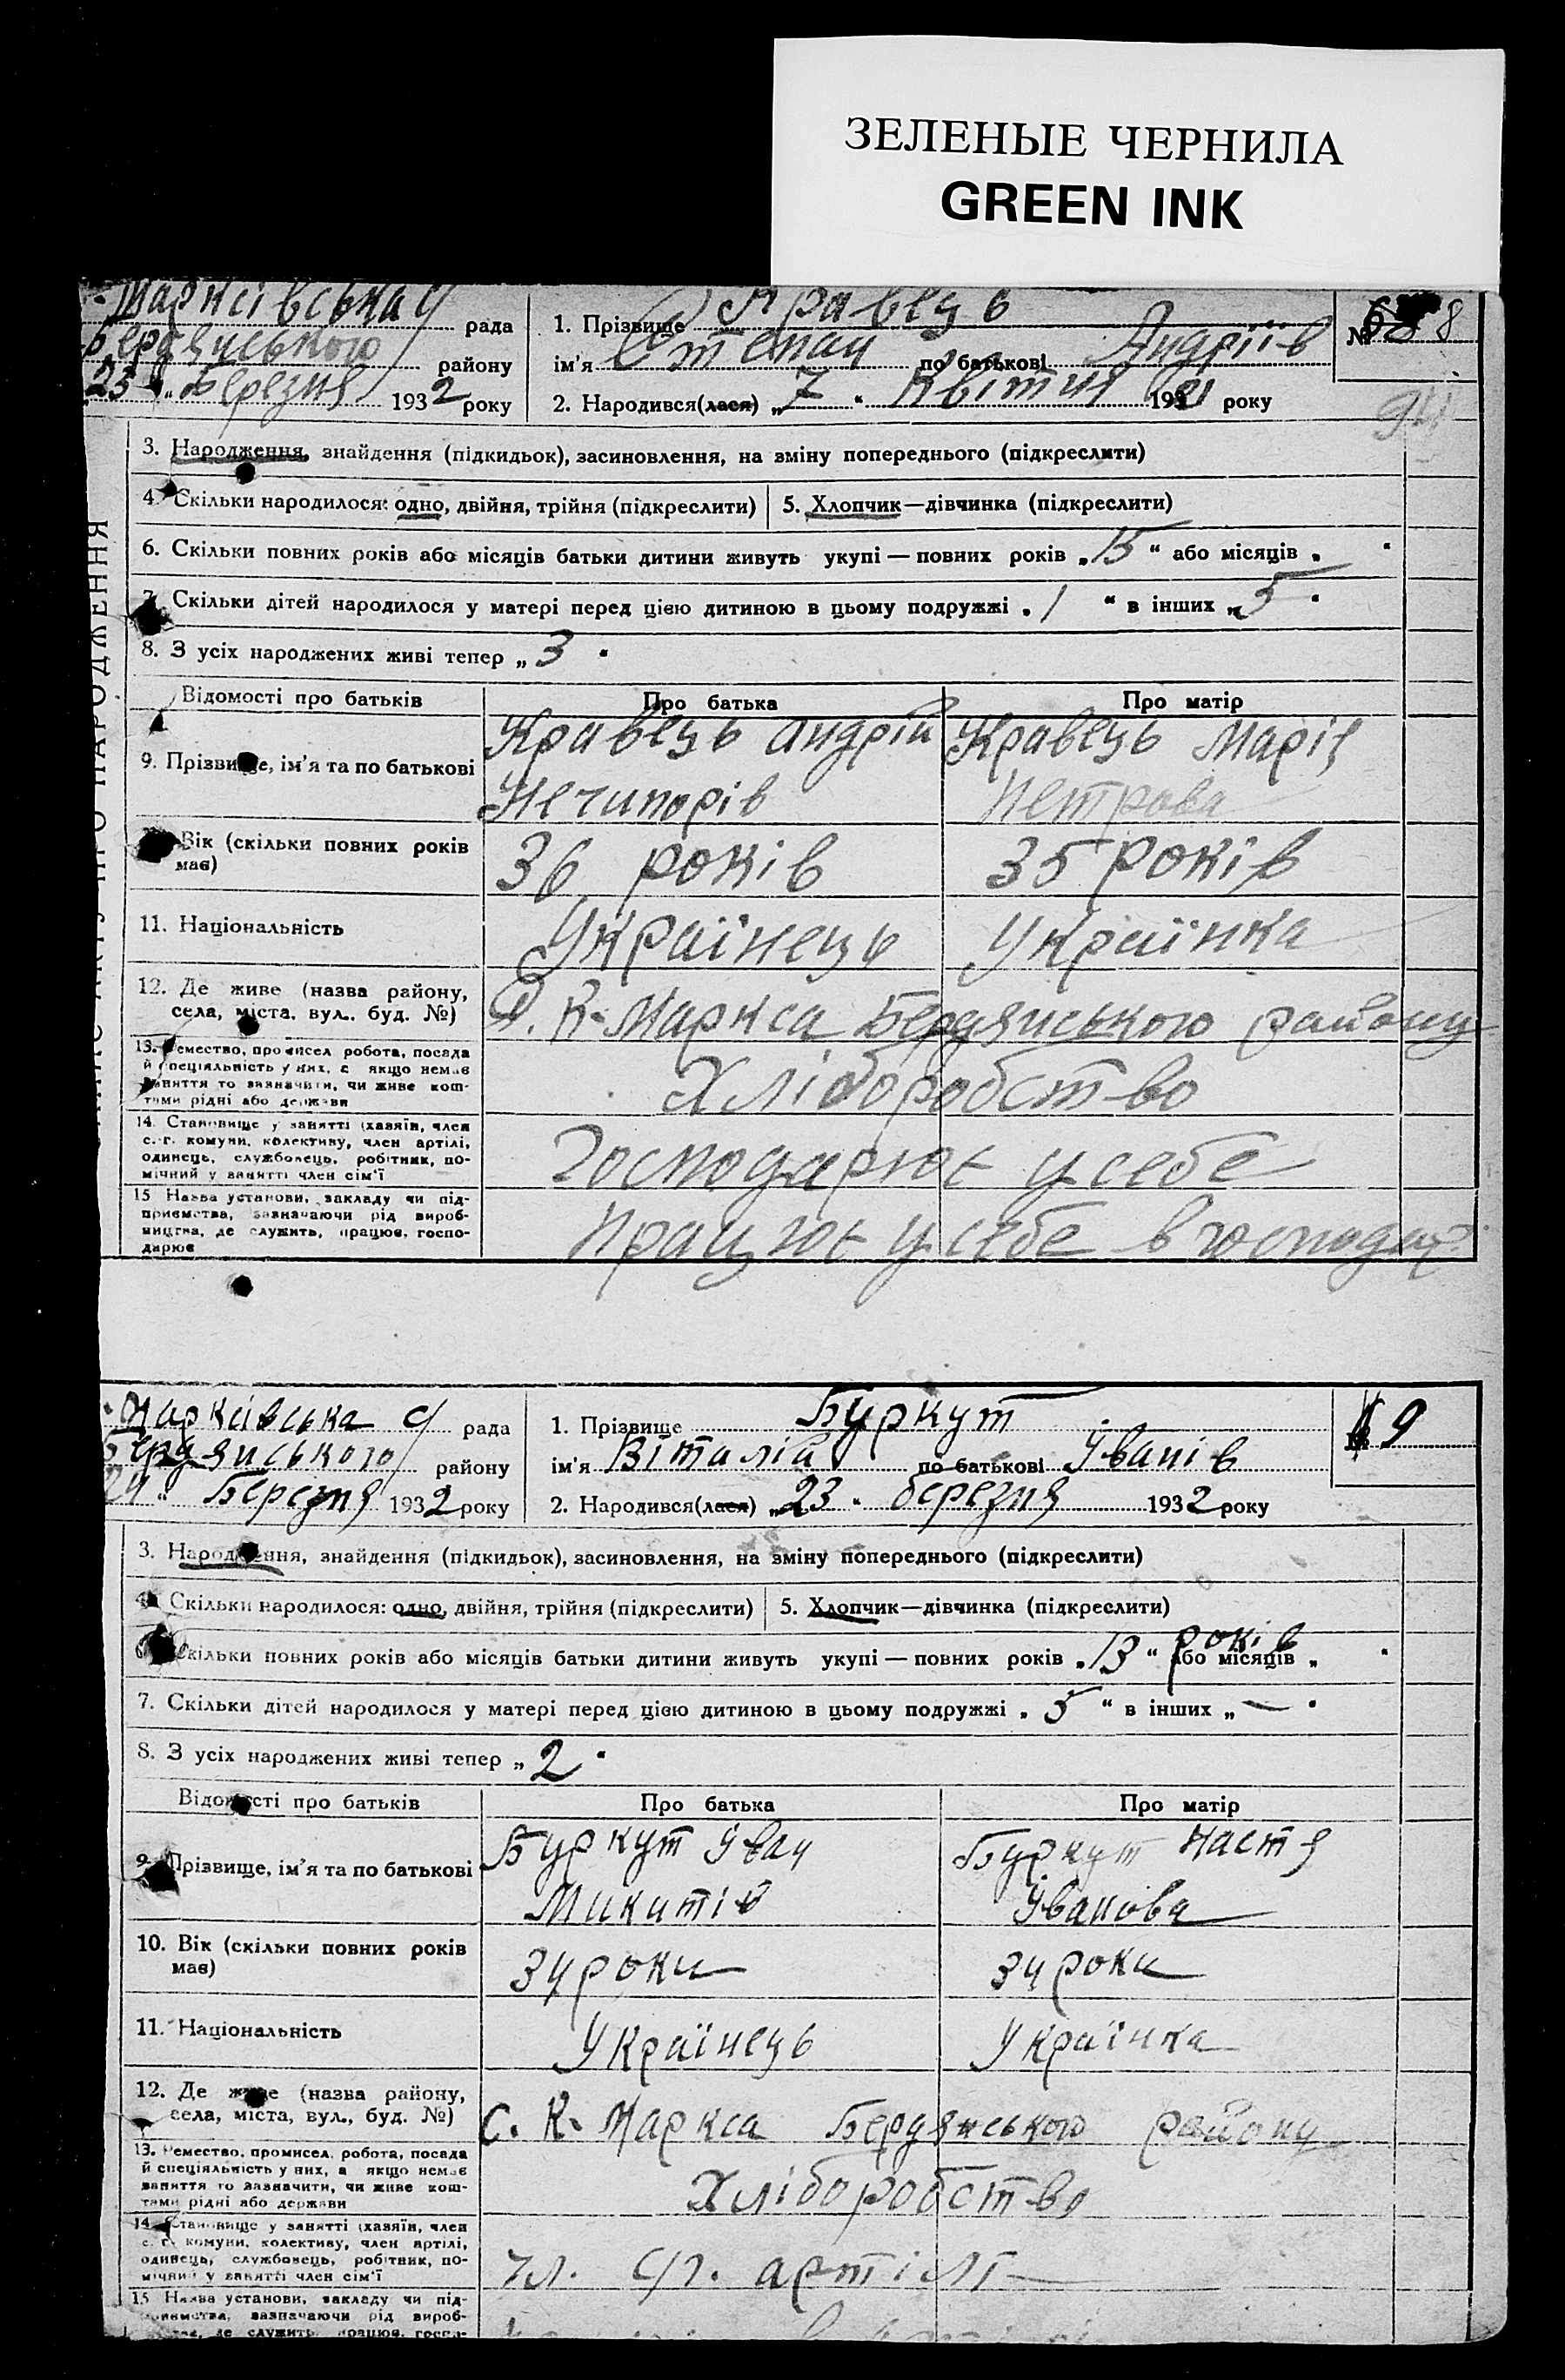 ЗЕЛЕНЫЕ ЧЕРНИЛА
GREEN INK
Марксівська с/ рада
Бердянського району
23 „ Березня 1932 року
1. Прізвище Кравець
ім'я Степан по батькові Андріїв
2. Народився(лася) „7" Квітня 1921 року
№ 8
3. Народження, знайдення (підкидьок), засиновлення, на зміну попереднього (підкреслити)
4. Скільки народилося: одно, двійня, трійня (підкреслити) 5. Хлопчик—дівчинка (підкреслити)
6. Скільки повних років або місяців батьки дитини живуть укупі — повних років „15" або місяців „ "
7. Скільки дітей народилося у матері перед цією дитиною в цьому подружжі „1" в інших „5"
8. З усіх народжених живі тепер „3"
Відомості про батьків Про батька Про матір
9. Прізвище, ім'я та по батькові Кравець Андрій Кравець Марія
Нечипорів Петрова
Вік (скільки повних років має) 36 років 35 років
11. Національність Українець Українка
12. Де живе (назва району, села, міста, вул., буд. №) С. К-Маркса Бердянського району
13. Ремество, промисел робота, посада
й спеціяльність у них, а якщо немає
заняття то зазначити, чи живе кош-
тами рідні або держави
Хліборобство
14. Становище у занятті (хазяїн, член
с.-г. комуни, колективу, член артілі,
одинець, службовець, робітник, по-
мічний у занятті член сім'ї
Господарює у себе
15 Назва установи, закладу чи під-
приємства, зазначаючи рід вироб-
ництва, де служить, працює, госпо-
дарює
Працює у себе в господар.
Марксівська с/ рада
Бердянського району
24 „ Березня 1932 року
1. Прізвище Буркут
ім'я Віталій по батькові Іванів
2. Народився(лася) „23" березня 1932 року
№ 9
3. Народження, знайдення (підкидьок), засиновлення, на зміну попереднього (підкреслити)
4. Скільки народилося: одно, двійня, трійня (підкреслити) 5. Хлопчик—дівчинка (підкреслити)
років
6. Скільки повних років або місяців батьки дитини живуть укупі — повних років „13" або місяців „ "
7. Скільки дітей народилося у матері перед цією дитиною в цьому подружжі „5" в інших „—"
8. З усіх народжених живі тепер „2"
Відомості про батьків Про батька Про матір
9. Прізвище, ім'я та по батькові Буркут Іван Буркут Настя
Микитів Іванова
10. Вік (скільки повних років має) 34 роки 34 роки
11. Національність Українець Українка
12. Де живе (назва району, села, міста, вул., буд. №) С. К. Маркса Бердянського району
13. Ремество, промисел, робота, посада
й спеціяльність у них, а якщо немає
заняття то зазначити, чи живе кош-
тами рідні або держави
Хліборобство
14. Становище у занятті (хазяїн, член
с.-г. комуни, колективу, член артілі,
одинець, службовець, робітник, по-
мічний у занятті член сім'ї
чл. с/г. артілі
15 Назва установи, закладу чи під-
приємства, зазначаючи рід вироб-
де служить, працює, госпо-